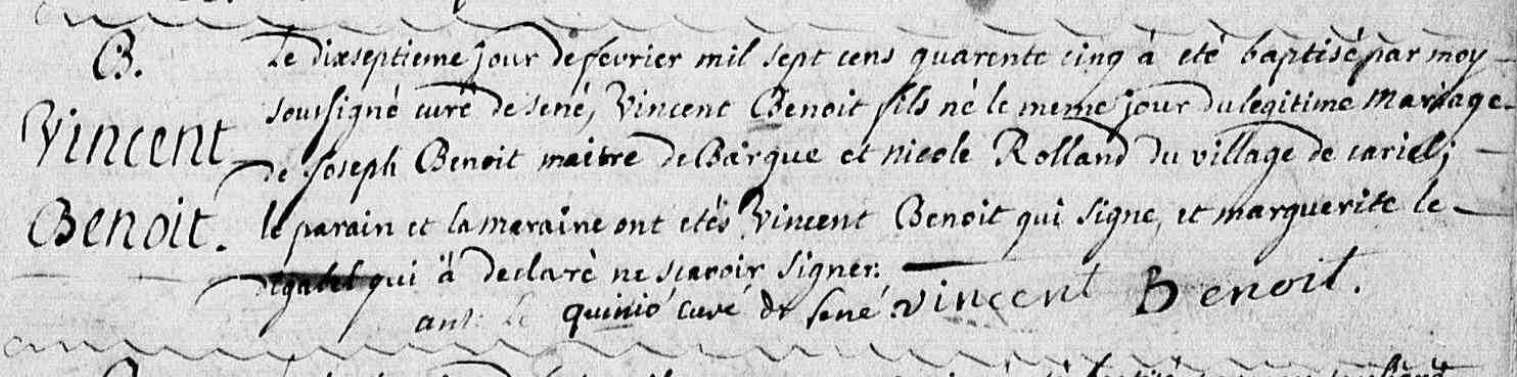 B.
Vincent
Benoit.
Le dixseptieme jour de fevrier mil sept cens quarente cinq à eté baptisé par moy
soussigné curé de sené, Vincent Benoit fils né le meme jour du legitime mariage
de Joseph Benoit maitre de Barque et nicole Rolland du village de cariel;
le parain et la maraine ont etés Vincent Benoit qui signe, et marguerite le
qui à declaré ne scavoir signer.
quinio curé de sené Vincent Benoit.